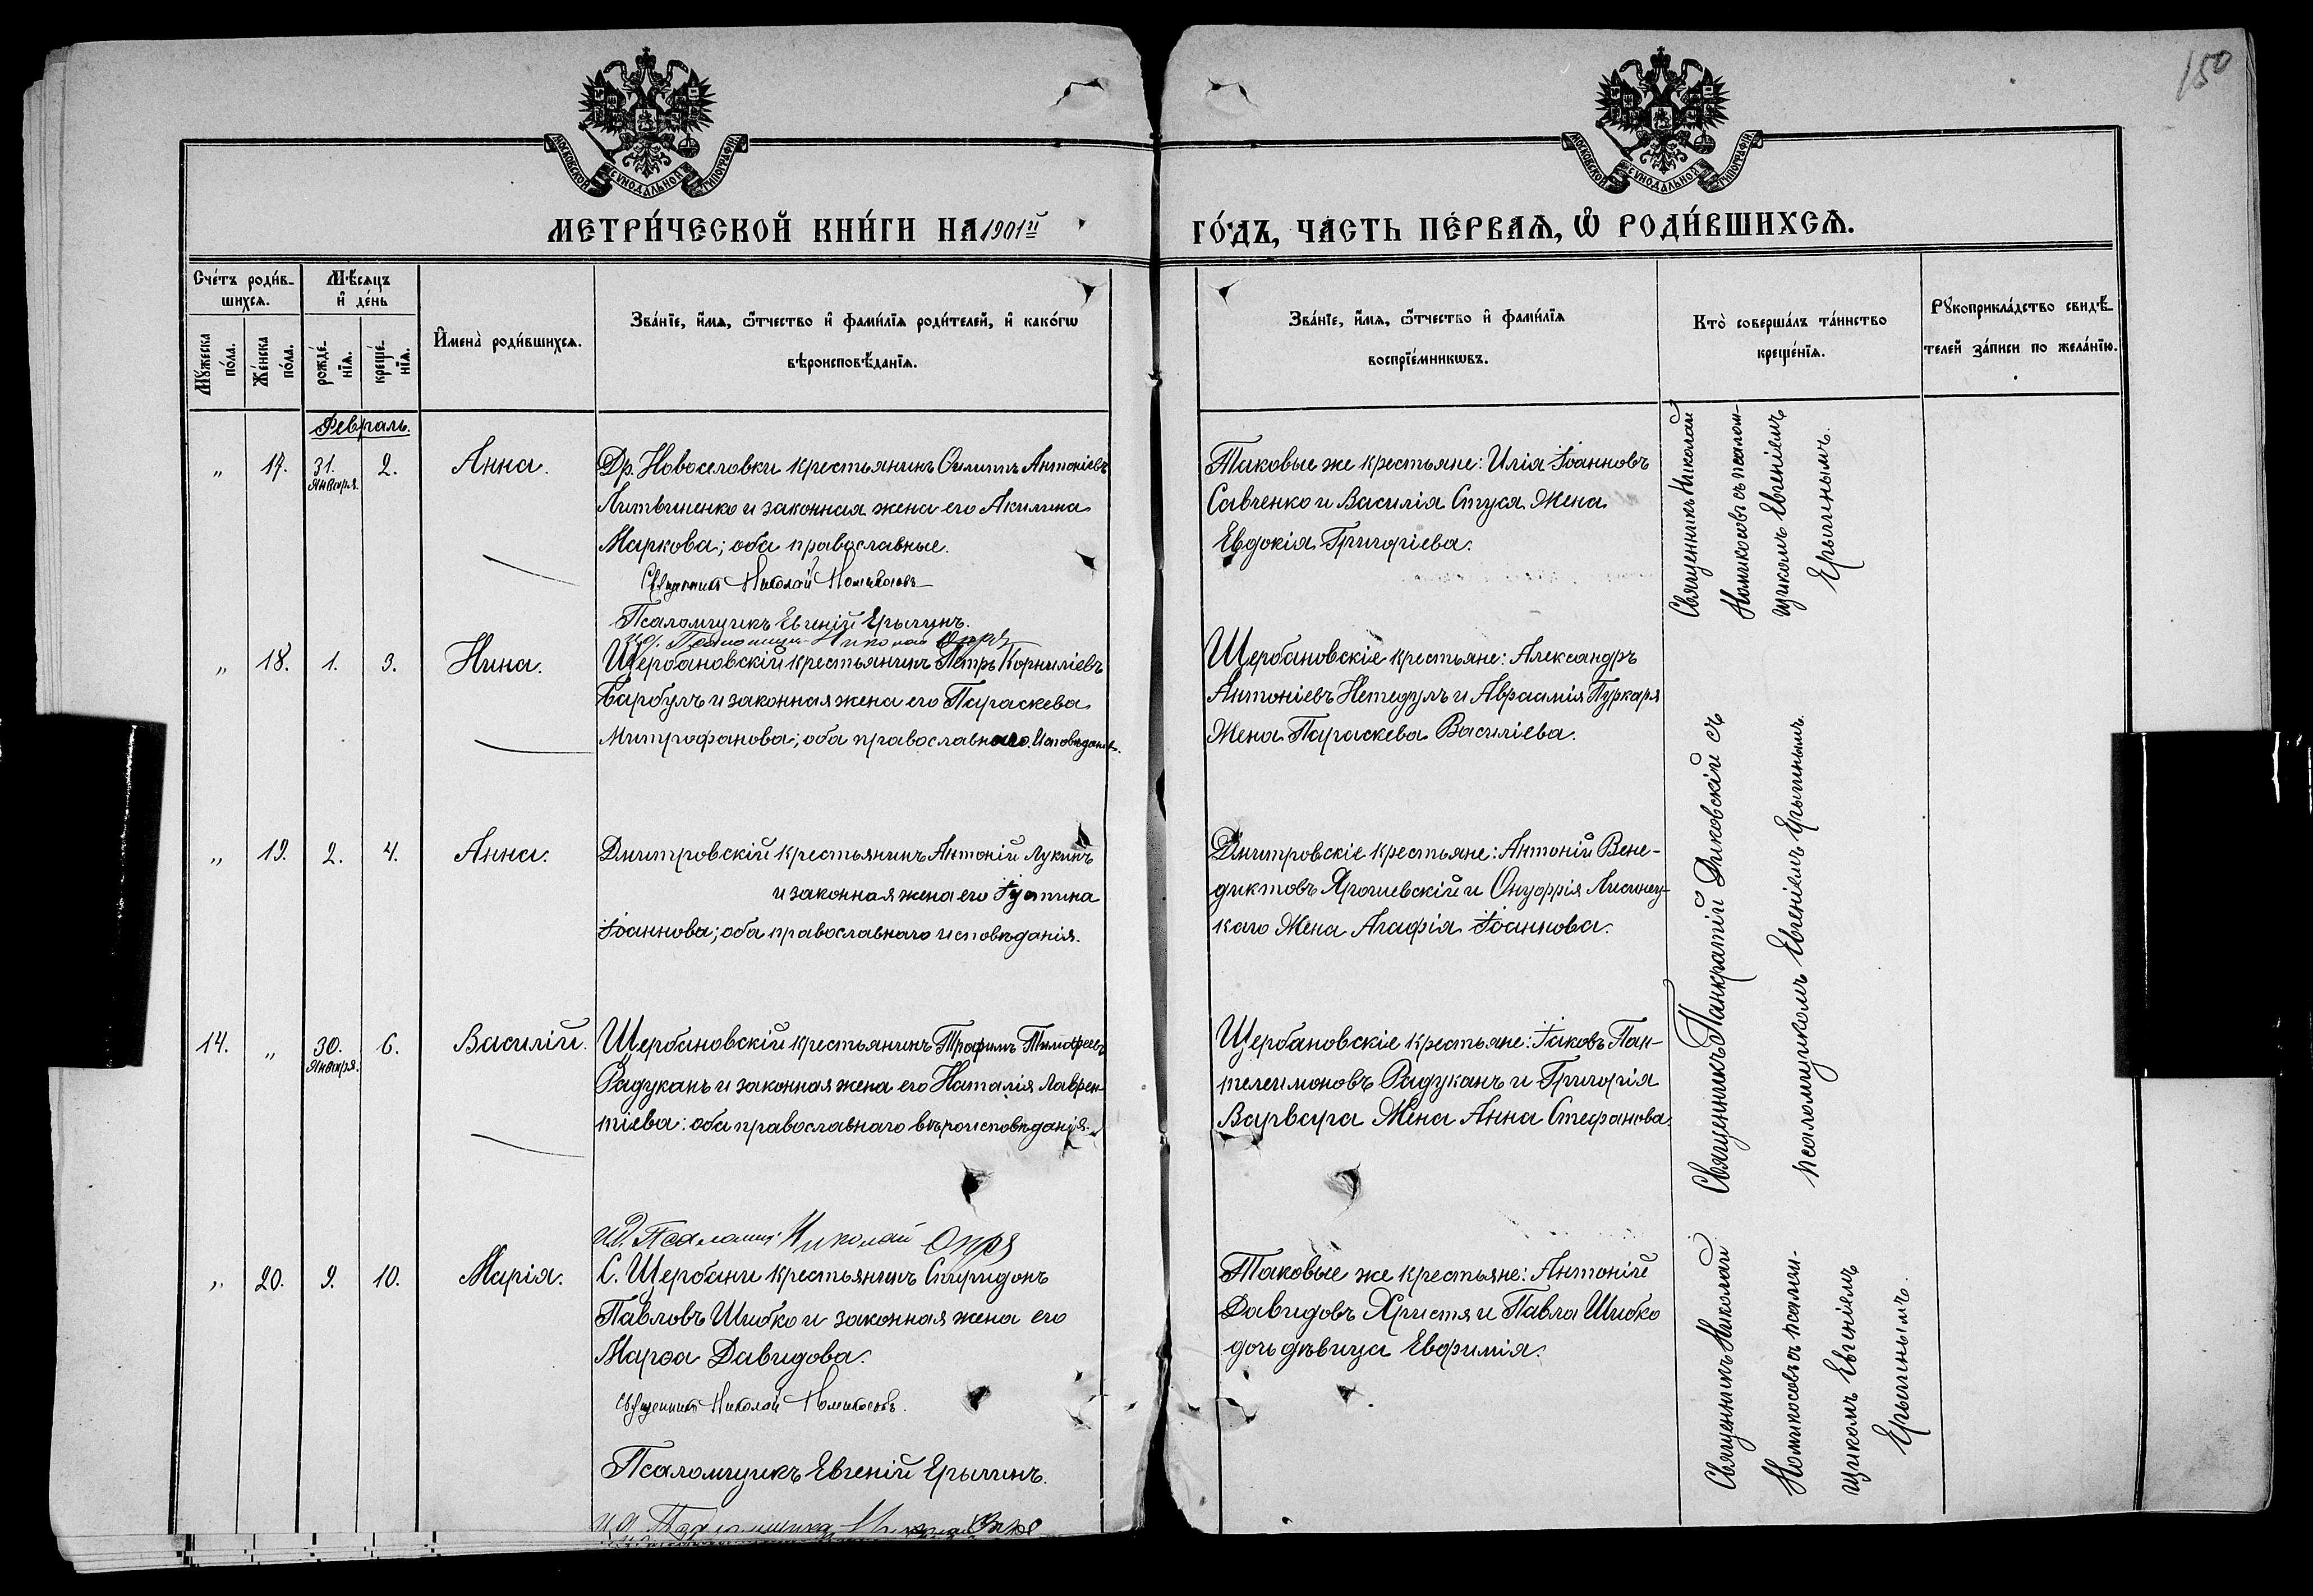 150
МОСКОВСКОЙ СУНОДАЛЬНОЙ ТИПОГРАФІИ
МОСКОВСКОЙ СУНОДАЛЬНОЙ ТИПОГРАФІИ
МЕТРИ́ЧЕСКОЙ КНИ́ГИ НА 1901й ГО́ДЪ, ЧАСТЬ ПЕ́РВАѦ, Ѡ РОДИ́ВШИХСѦ.
Сче́тъ роди́в-
шихсѧ.
Мꙋ́жеска
по́ла.
Же́нска
по́ла.
Мѣ́сѧцъ
и҆ де́нь
рожде́-
нїѧ.
креще́-
нїѧ.
И҆мена̀ роди́вшихсѧ.
Зва́нїе, и҆́мѧ, ѻ҆́тчество и҆ фами́лїѧ роди́телей, и҆ како́гѡ
вѣроисповѣ́данїѧ.
Зва́нїе, и҆́мѧ, ѻ҆́тчество и҆ фами́лїѧ
воспрїе́мникѡвъ.
Кто̀ соверша́лъ та́инство
креще́нїѧ.
Рꙋкоприкла́дство свидѣ́-
телей за́писи по жела́нїю.
Февраль.
" 17. 31. января. 2. Анна.
Др. Новоселовки крестьянинъ Филиппъ Антоніевъ
Литвиненко и законная жена его Акилина
Маркова; оба православные.
Священникъ Николай Номикосовъ
Псаломщикъ Евгеній Ерыгинъ.
и. д. Псаломщи Николай Опря
Таковые же крестьяне: Илія Іоанновъ
Савченко и Василія Стуся жена
Евдокія Григоріева.
Священникъ Николай
Номикосовъ съ псалом-
щикомъ Евгеніемъ
Ерыгинымъ.
" 18. 1. 3. Нина.
Щербановскій крестьянинъ Петръ Корниліевъ
Барбулъ и законная жена его Параскева
Митрофанова; оба православнаго исповѣданія.
Щербановскіе крестьяне: Александръ
Антоніевъ Нетедулъ и Авраамія Пуркаря
жена Параскева Василіева.
" 19. 2. 4. Анна.
Дмитровскій крестьянинъ Антоній Лукинъ
и законная жена его Іустина
Іоаннова; оба православнаго исповѣданія.
Дмитровскіе крестьяне: Антоній Вене-
диктовъ Ярошевскій и Онуфрія
каго жена Агафія Іоаннова.
Священникъ Панкратій Диковскій съ
псаломщикомъ Евгеніемъ Ерыгинымъ.
14. " 30. января. 6. Василій.
Щербановскій крестьянинъ Трофимъ Тимофеевъ
Радуканъ и законная жена его Наталія Лаврен-
тіева: оба православнаго вѣроисповѣданія.
и. д. Псаломщ. Николай Опря
Щербановскіе крестьяне: Іаковъ Пан-
телеимоновъ Радуканъ и Григорія
Варвара жена Анна Стефанова.
" 20. 9. 10. Марія.
С. Щербани крестьянинъ Спиридонъ
Павловъ Шибко и законная жена его
Марѳа Давидова.
Священникъ Николай Номикосовъ.
Псаломщикъ Евгеній Ерыгинъ.
и. д. Псаломщика
Таковые же крестьяне: Антоній
Давидовъ Христя и Павла Шибко
дочь дѣвица Евфимія.
Священникъ Николай
Номикосовъ съ псалом-
щикомъ Евгеніемъ
Ерыгинымъ.